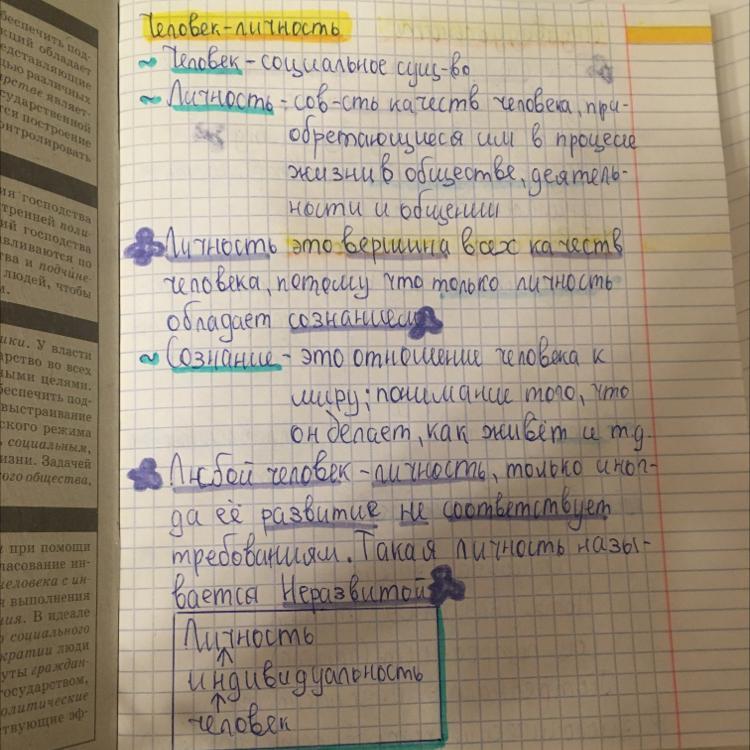 Человек-личность
~ Человек - социальное сущ-во
~ Личность - сов-сть качеств человека, при-
обретающиеся им в процессе
жизни в обществе, деятель-
ности и общении
Личность это вершина всех качеств
человека, потому что только личность
обладает сознанием
~ Сознание - это отношение человека к
миру; понимание того, что
он делает, как живёт и т.д.
Любой человек - личность, только иног-
да её развитие не соответствует
требованиям. Такая личность назы-
вается Неразвитой
Личность
↑
индивидуальность
↑
человек
беспечить под-
кций обладает
едставляющие
щью различных
арстве являет-
сударственной
тся построение
контролировать
ия господства
тренней поли-
ий господства
авливаются по
тва и подчине-
людей, чтобы
м.
ики. У власти
арство во всех
ными целями.
беспечить под-
выстраивание
ского режима
, социальным,
изни. Задачей
ого общества,
и при помощи
ласование ин-
человека с ин-
я выполнения
ния. В идеале
о социального
кратии люди
уты граждан-
государством,
олитические
ствующие эф-